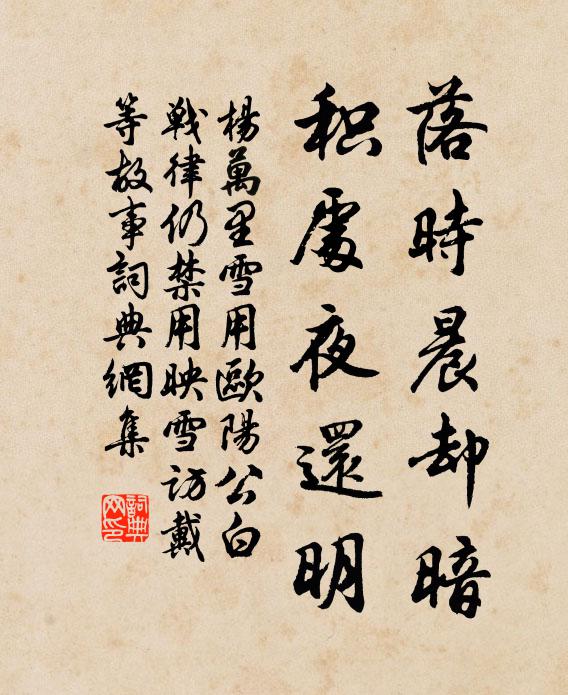 落時晨却暗
积處夜還明
楊萬里雪用歐陽公白
戦律仍禁用映雪访戴
等故事詞典網集
詞典网印